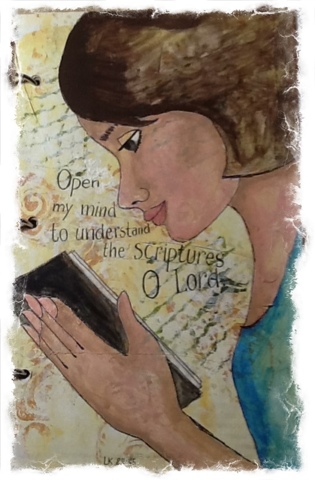 Open
my mind
to understand
the scriptures
O Lord